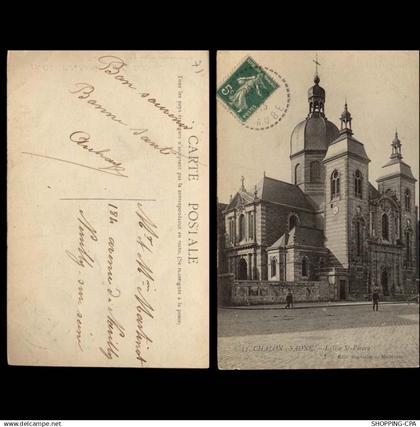 71
Bon souvenir
Bonne santé
CARTE POSTALE
Tous les pays étrangers n'acceptent pas
la correspondance au recto. (Se renseigner à la poste).
Mr & Mme Martinot
184 avenue de Neuilly
Neuilly-sur-seine
5c
AUBE
CHALON-S-SAONE - Eglise St-Pierre
www.SHOPPING-CPA.com